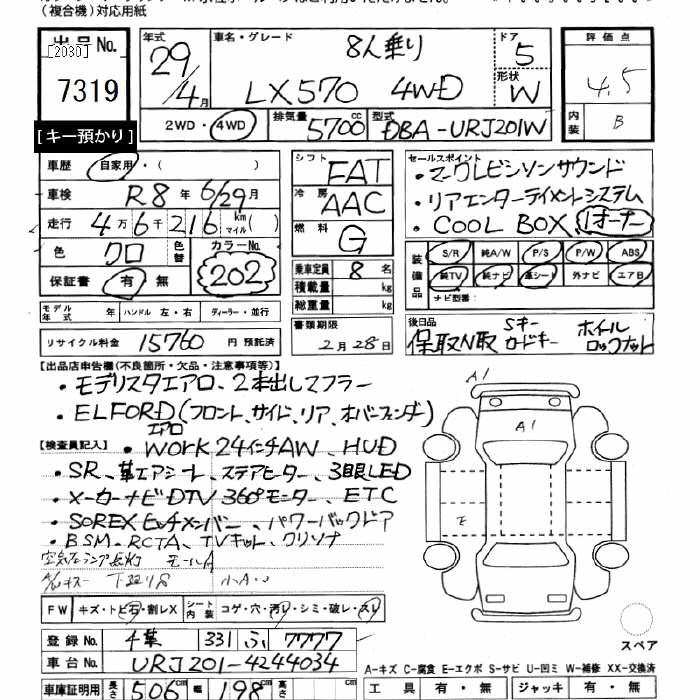 （複合機）対応用紙
出品 No.
[2030]
7319
【キー預かり】
年式 29/4月
車名・グレード 8人乗り
LX570 4WD
ドア 5
形状 W
評価点 4.5
内装 B
2WD・4WD 排気量 5700 cc 型式 DBA-URJ201W
車歴 自家用・( )
車検 R8年 6/29月
走行 4万6千216 km マイル( )
色 クロ 色替 カラーNo. 202
保証書 有・無
モデル年式 年 ハンドル 左・右 ディーラー・並行
リサイクル料金 15760 円 預託済
シフト FAT
冷房 AAC
燃料 G
乗車定員 8 名
積載量 kg
総重量 kg
書類期限
2月28日
セールスポイント
・マークレビンソンサウンド
・リアエンターテイメントシステム
・COOL BOX 1オーナー
装備品 S/R 純A/W P/S P/W ABS
純TV 純ナビ 革シート 外ナビ エアB
ナビ型番：
後日品
保取N取 Sキー カードキー ホイルロックナット
【出品店申告欄(不良箇所・欠品・注意事項等)】
・モデリスタエアロ、2本出しマフラー
・ELFORD(フロント、サイド、リア、オーバーフェンダー)
エアロ
【検査員記入】・WORK 24インチAW、HUD
・SR、革エアシート、ステアヒーター、3眼LED
・メーカーナビDTV 360°モニター、ETC
・SOREXヒッチメンバー、パワーバックドア
・BSM、RCTA、TVキット、クリソナ
FW キズ・トビ石・割レX シート内装 コゲ・穴・汚レ・シミ・破レ・スレ
登録 No. 千葉 331 ふ 7777
車台 No. URJ201-4244034
車庫証明用 長さ 506 cm 幅 198 cm
A1
A1
E
スペア
A-キズ C-腐食 E-エクボ S-サビ U-凹ミ W-補修 XX-交換済
工具 有・無 ジャッキ 有・無